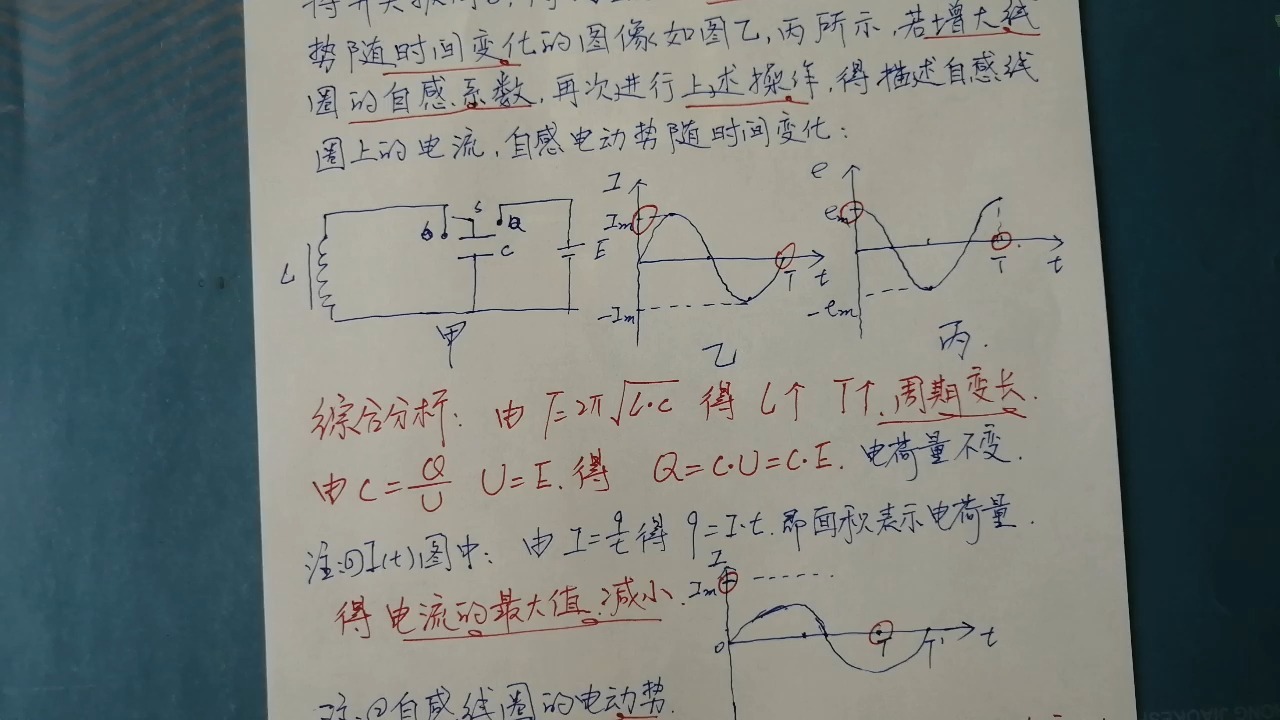 势随时间变化的图像如图乙,丙所示,若增大线
圈的自感系数,再次进行上述操作,得描述自感线
圈上的电流,自感电动势随时间变化:
L b S Q C E 甲
I Im -Im T t 乙
e em -em T t 丙.
综合分析: 由 T=2π√L·C 得 L↑ T↑. 周期变长.
由 C=Q/U U=E. 得 Q=C·U=C·E. 电荷量不变.
注①I(t)图中: 由 I=q/t 得 q=I·t. 即面积表示电荷量.
得电流的最大值减小.
I Im 0 T T' t
注:②自感线圈的电动势.